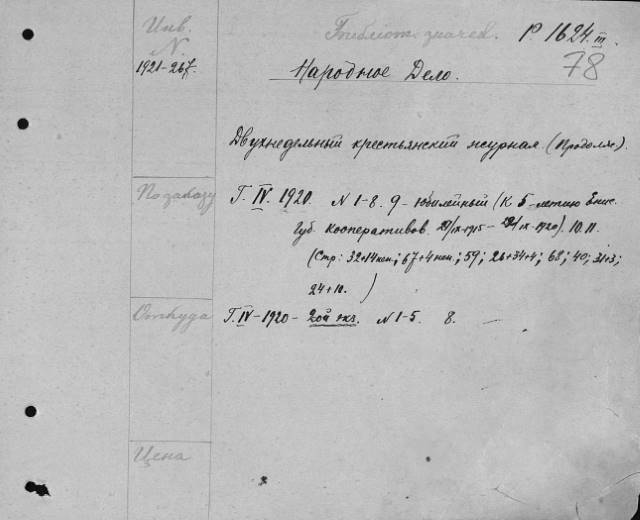 Инв. N.
1921-267.
Библіот. значек. Р. 1624 III
78
Народное Дело.
Двухнедельный крестьянский журнал. (Продолж.)
По заказу
Г. IV. 1920. N 1-8. 9 - юбилейный (К 5-летию Енис.
Губ. Кооперативов /IX-1915 - /IX-1920). 10. 11.
(Стр: 32+14нен.; 67+4нен.; 59; 26+34+4; 68; 40; 31+3;
24+10. )
Откуда
Г. IV - 1920 - 2ой экз. N 1-5. 8. —
Цена